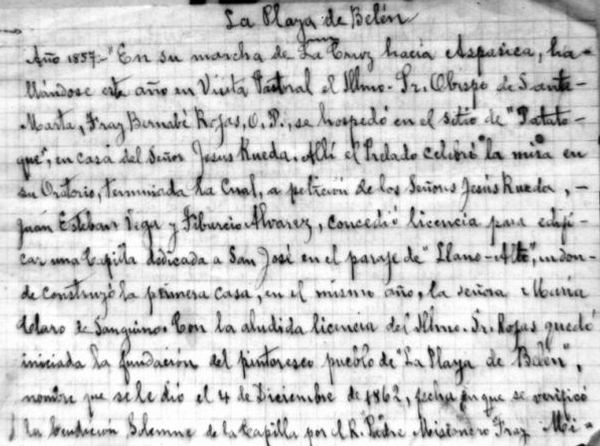 La Playa de Belén
Año 1857.- "En su marcha de La Cruz hacia Aspasica, ha-
llándose este año en Visita Pastoral el Illmo. Sr. Obispo de Santa-
Marta, Fray Bernabé Rojas, O.P., se hospedó en el sitio de "Patato-
que", en casa del Señor Jesús Rueda. Allí el Prelado celebró la misa en
su Oratorio, terminada la Cual, a petición de los Señores Jesús Rueda, -
Juan Esteban Vega y Tiburcio Alvarez, concedió licencia para edifi-
car una Capilla dedicada a San José en el paraje de "Llano-Alto", en don-
de construyó la primera casa, en el mismo año, la señora María
Claro de Sanguino. Con la aludida licencia del Illmo. Sr. Rojas quedó
iniciada la fundación del pintoresco pueblo de "La Playa de Belén",
nombre que se le dió el 4 de Diciembre de 1862, fecha en que se verificó
la bendición Solemne de la Capilla por el R. Padre Misionero Fray Mi-